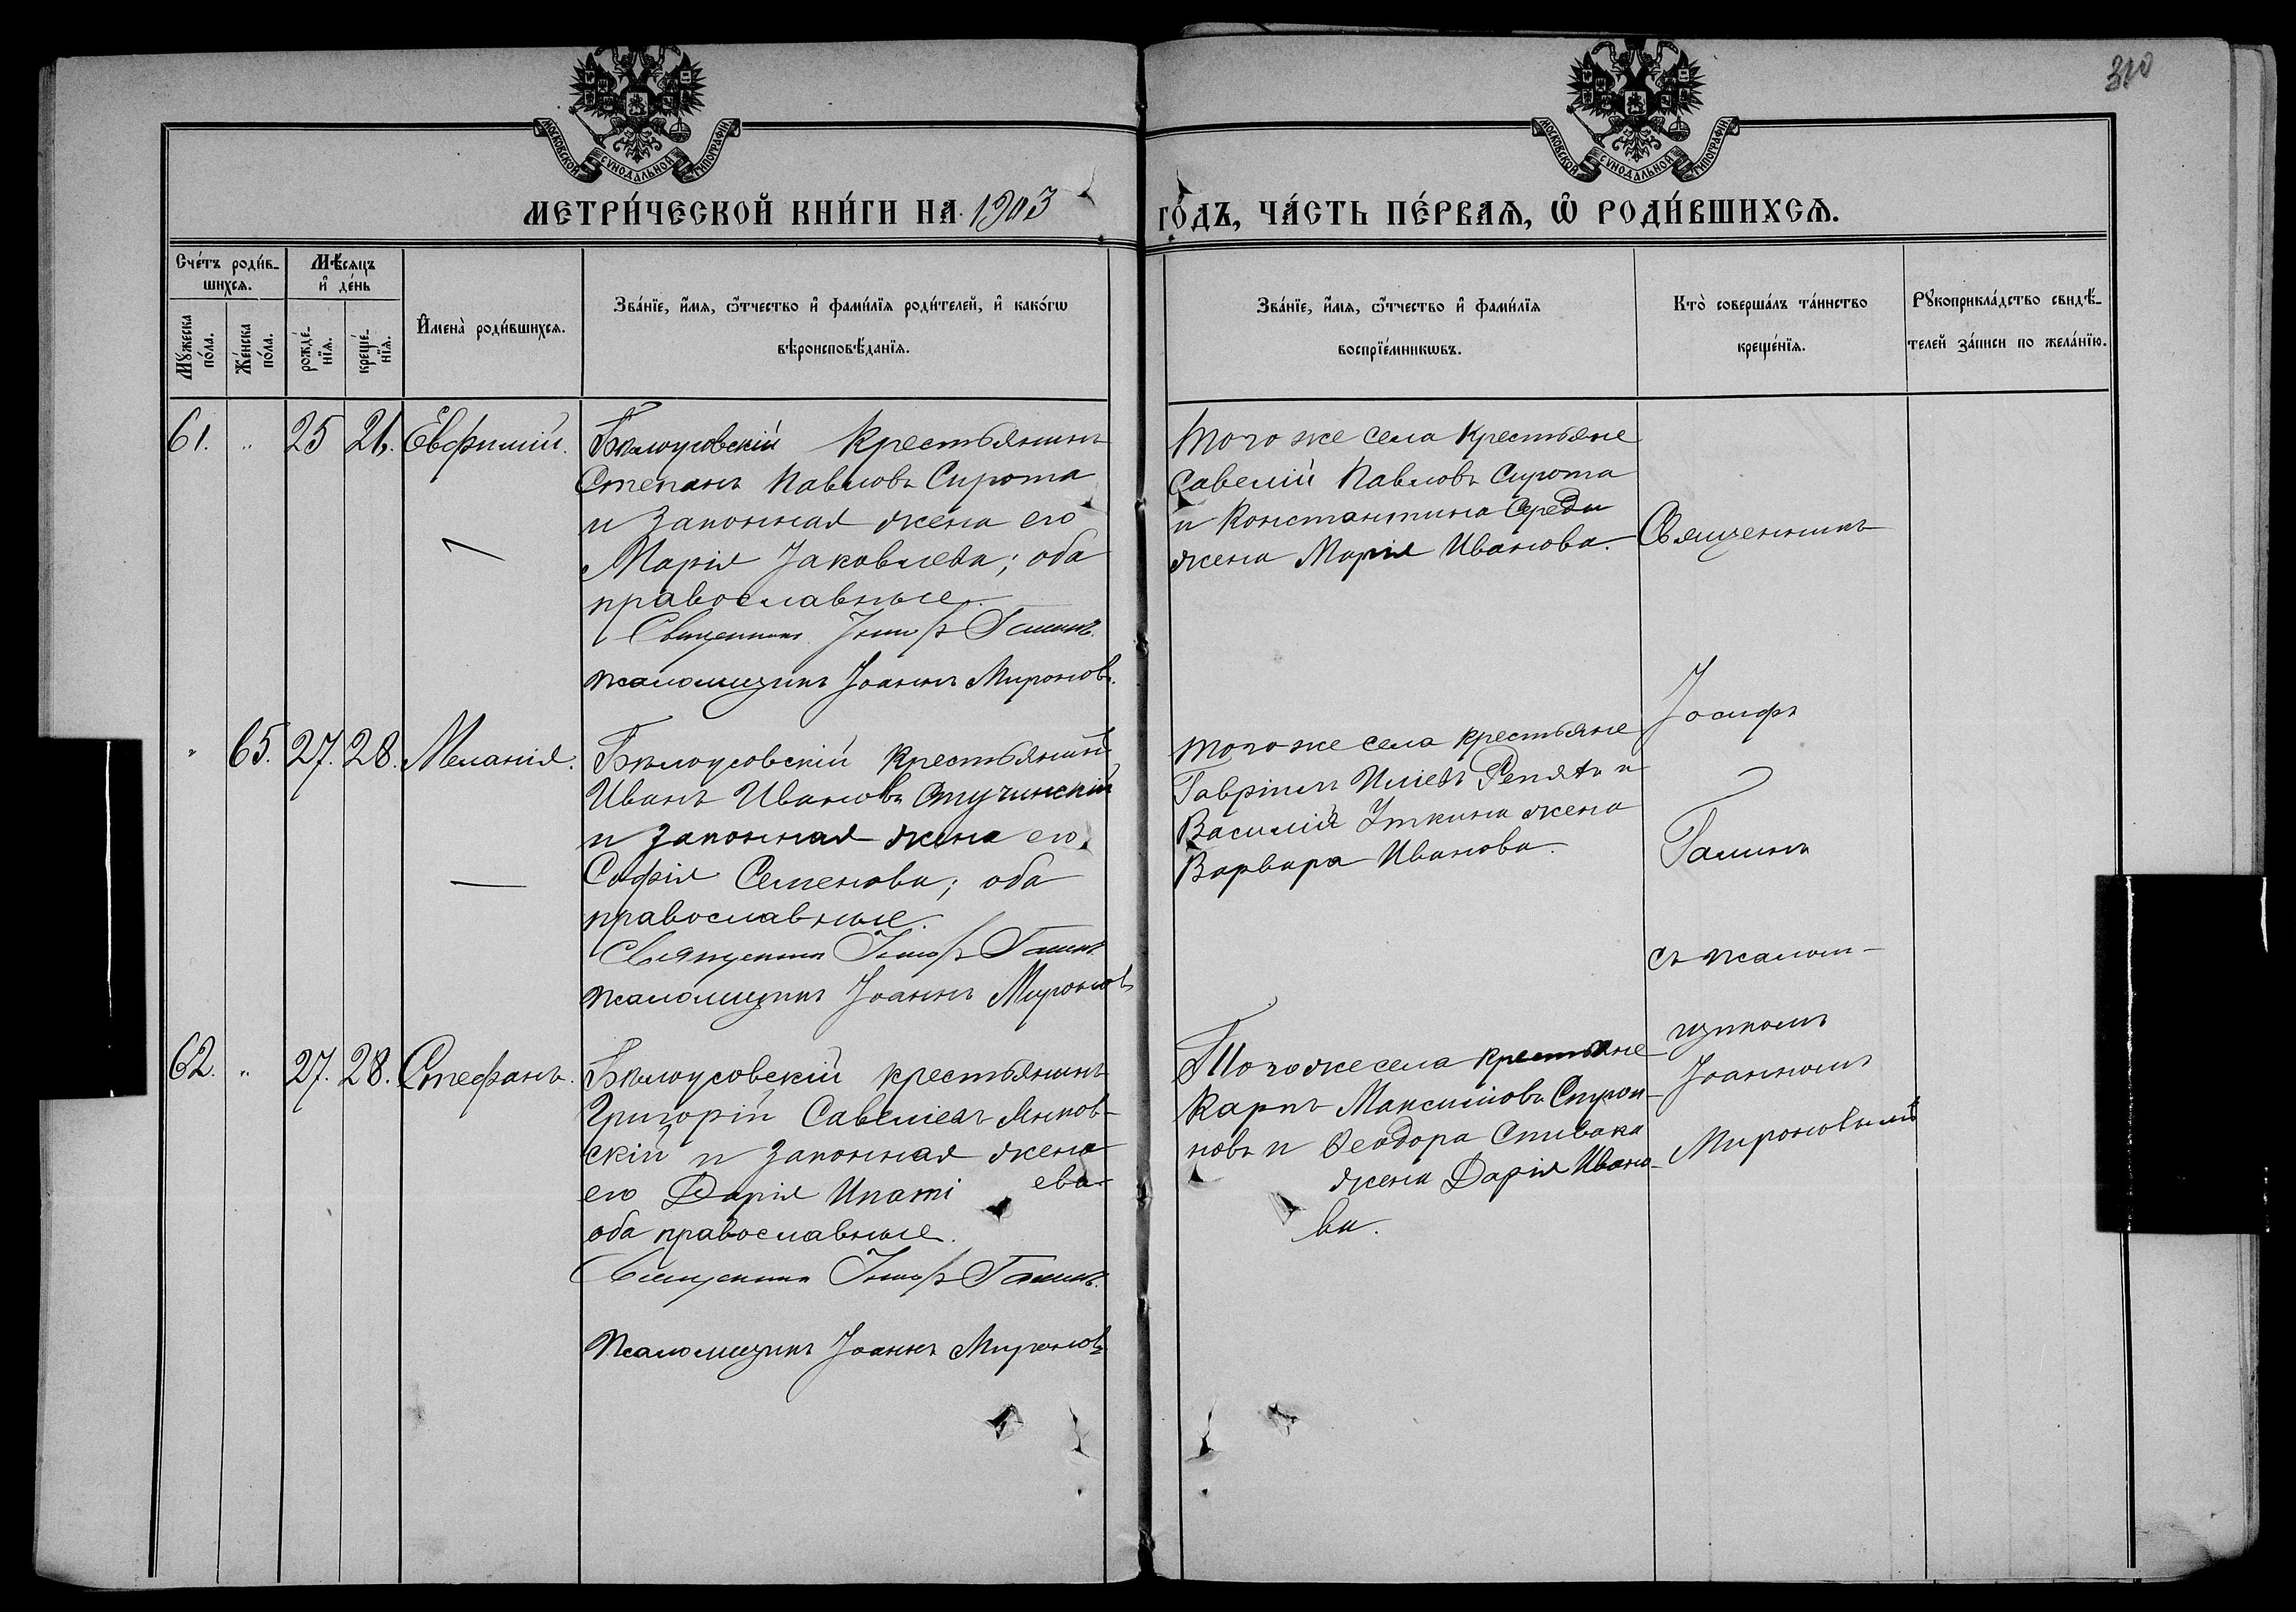 310
МОСКОВСКОЙ СѴНОДАЛЬНОЙ ТИПОГРАФІИ.
МОСКОВСКОЙ СѴНОДАЛЬНОЙ ТИПОГРАФІИ.
МЕТРИ́ЧЕСКОЙ КНИ́ГИ НА 1903
ГО́ДЪ, ЧА́СТЬ ПЕ́РВАЯ, Ѡ РОДИ́ВШИХСЯ.
Сче́тъ роди́в-
шихсѧ.
Мꙋжеска
по́ла.
Же́нска
по́ла.
Мѣ́сѧцъ
и҆ де́нь
рожде́-
нїѧ.
креще́-
нїѧ.
И҆мена̀ роди́вшихсѧ.
Зва́нїе, и҆́мѧ, ѻ҆́тчество и҆ фами́лїѧ роди́телей, и҆ како́гѡ
вѣроисповѣ́данїѧ.
Зва́нїе, и҆́мѧ, ѻ҆́тчество и҆ фами́лїѧ
воспрїе́мникѡвъ.
Кто̀ соверша́лъ та́инство
креще́нїѧ.
Рꙋкоприкла́дство свидѣ́-
телей за́писи по жела́нїю.
61. „ 25 26. Евфимій.
Бѣлоусовскій крестьянинъ
Степанъ Павловъ Сирота
и законная жена его
Марія Іаковлева; оба
православные.
Священникъ Іосифъ Галинъ.
Псаломщикъ Іоаннъ Мироновъ.
Того же села крестьяне
Савелій Павловъ Сирота
и Константина Середы
жена Марія Иванова.
„ 65. 27. 28. Меланія.
Бѣлоусовскій крестьянинъ
Иванъ Ивановъ Стучинскій
и законная жена его
Софія Семенова; оба
православные.
Священникъ Іосифъ Галинъ
Псаломщикъ Іоаннъ Мироновъ
Того же села крестьяне
Гавріилъ Иліевъ и
Василія Уткина жена
Варвара Иванова.
62. „ 27. 28. Стефанъ.
Бѣлоусовскій крестьянинъ
Григорій Савеліевъ Янков-
скій и законная жена
его Дарія Ипатіева
оба православные.
Священникъ Іосифъ Галинъ.
Псаломщикъ Іоаннъ Мироновъ
Того же села крестьяне
Карпъ Максимовъ
и Ѳеодора Спивака
жена Дарія Ивано-
ва.
Священникъ
Іосифъ
Галинъ
съ псалом-
щикомъ
Іоанномъ
Мироновымъ